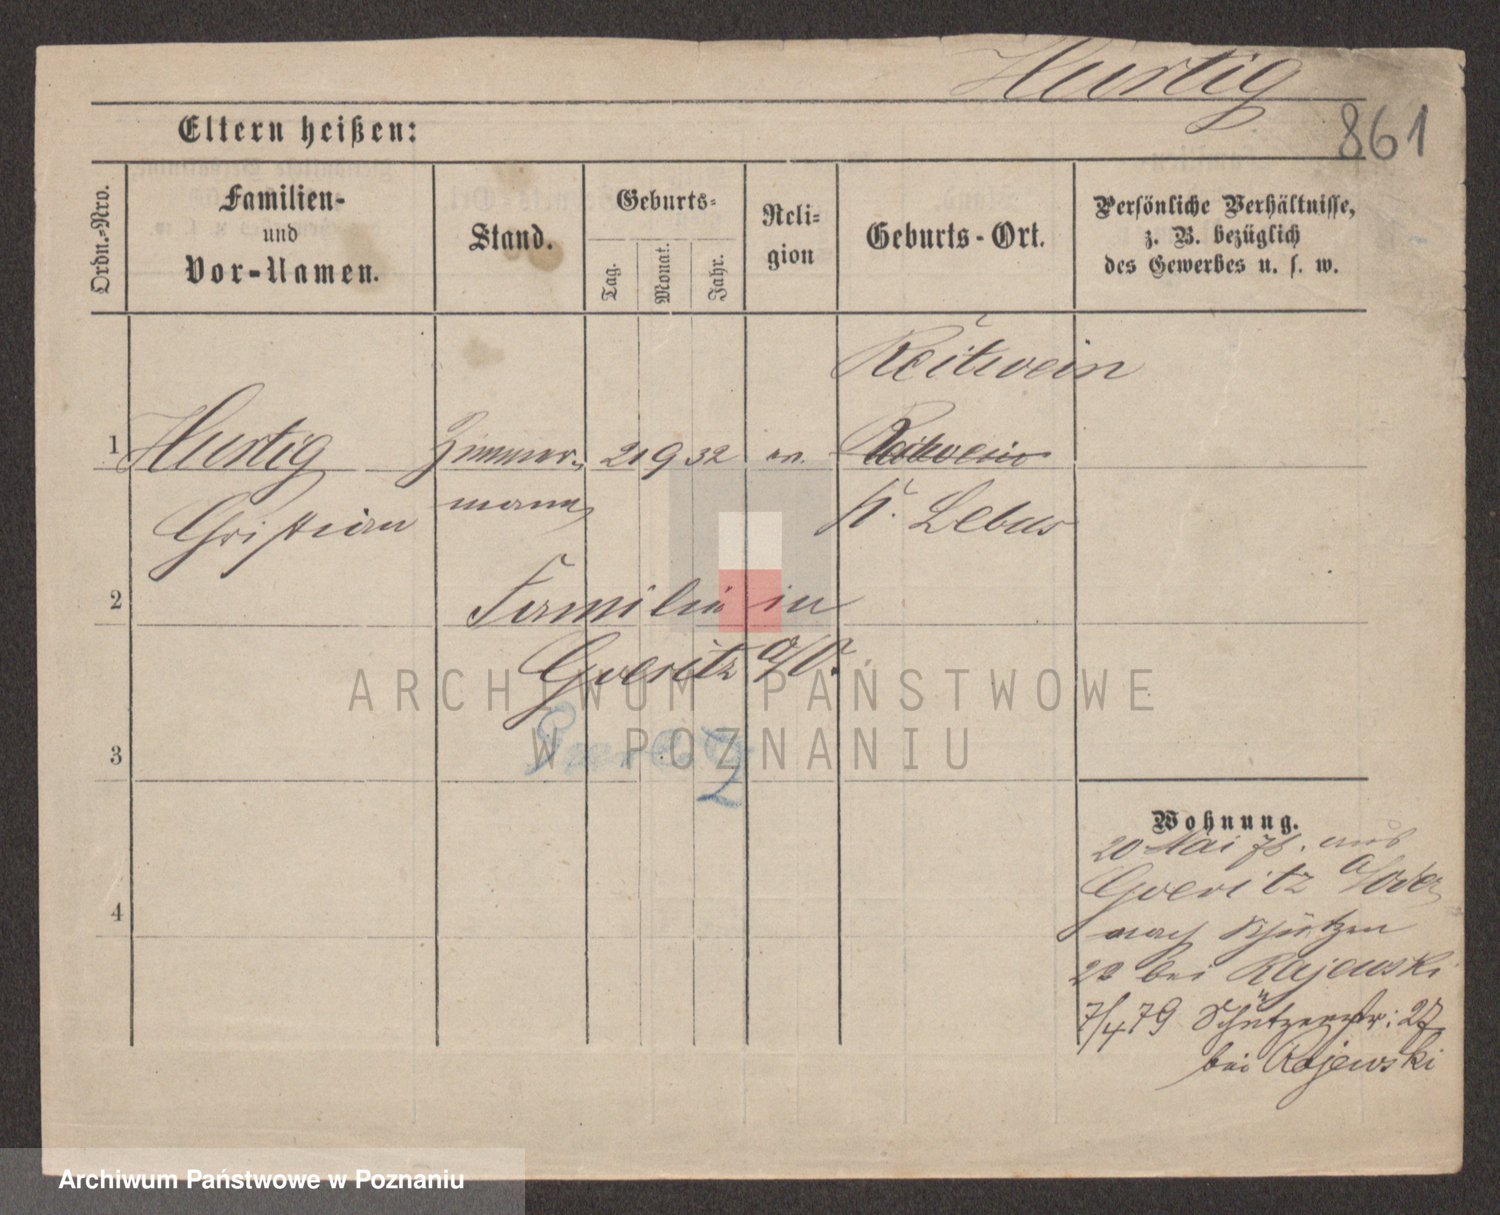 Hurtig
861
Eltern heißen:
Ordn.-Nro.
Familien-
und
Vor-Namen.
Stand.
Geburts-
Tag.
Monat.
Jahr.
Reli-
gion
Geburts-Ort.
Persönliche Verhältnisse,
z. B. bezüglich
des Gewerbes u. s. w.
Reitwein
1 Hurtig Zimmer- 21 9 32 ev. Reitwein
Christian mann Kr. Lebus
2 Familie in
Goeritz a/O.
3
4
Wohnung.
20 Mai 78. aus
Goeritz a/Oder
nach Schützen
22 bei Rajewski
7/4 79 Schützenstr: 27
bei Rajewski
ARCHIWUM PAŃSTWOWE
W POZNANIU
Archiwum Państwowe w Poznaniu